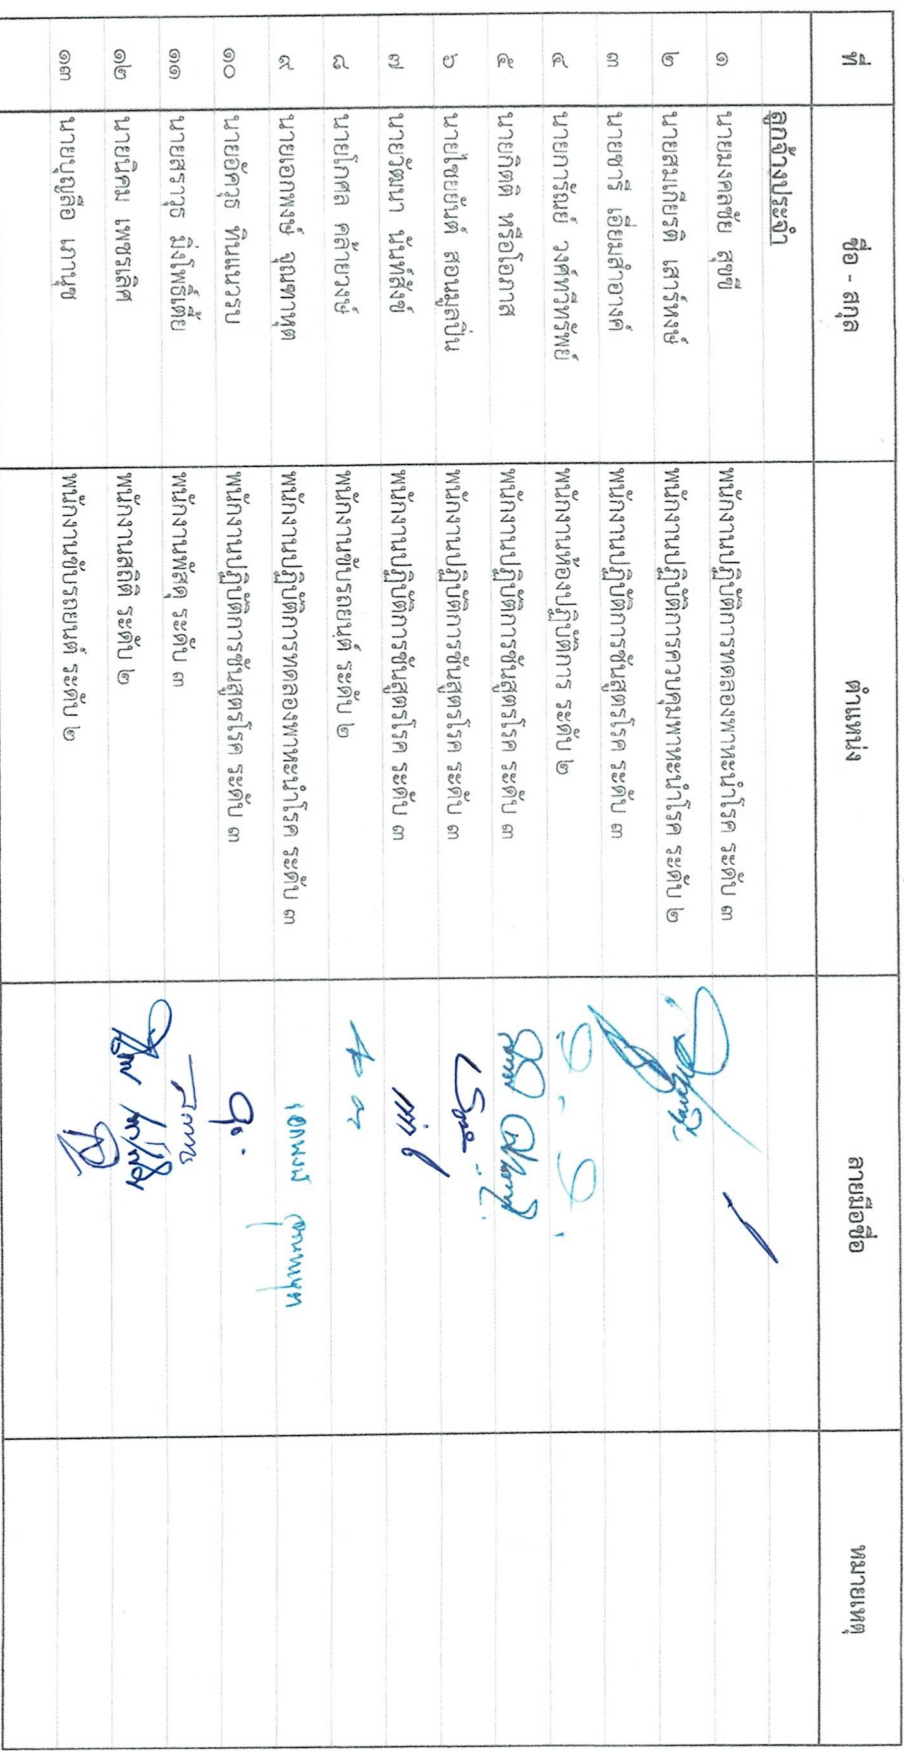 ที่ ชื่อ - สกุล ตำแหน่ง ลายมือชื่อ หมายเหตุ
ลูกจ้างประจำ
๑ นายมงคลชัย สุขขี พนักงานปฏิบัติการทดลองพาหะนำโรค ระดับ ๓
๒ นายสมเกียรติ เสาร์หงษ์ พนักงานปฏิบัติการควบคุมพาหะนำโรค ระดับ ๒
๓ นายชารี เอี่ยมสำอางค์ พนักงานปฏิบัติการชันสูตรโรค ระดับ ๓
๔ นายการัณย์ วงศ์ทวีทรัพย์ พนักงานห้องปฏิบัติการ ระดับ ๒
๕ นายกิตติ หรือโอภาส พนักงานปฏิบัติการชันสูตรโรค ระดับ ๓
๖ นายไชยยันต์ สอนมูลปิ่น พนักงานปฏิบัติการชันสูตรโรค ระดับ ๓
๗ นายวัฒนา นันท์สังข์ พนักงานปฏิบัติการชันสูตรโรค ระดับ ๓
๘ นายโกศล คล้ายวงษ์ พนักงานขับรถยนต์ ระดับ ๒
๙ นายเอกพงษ์ จูฑหานุต พนักงานปฏิบัติการทดลองพาหะนำโรค ระดับ ๓ เอกพงษ์
๑๐ นายอัศวุธ ทินแนวรบ พนักงานปฏิบัติการชันสูตรโรค ระดับ ๓
๑๑ นายสราวุธ มิ่งโพธิ์เตี้ย พนักงานพัสดุ ระดับ ๓
๑๒ นายนิคม เพชรเลิศ พนักงานสถิติ ระดับ ๒
๑๓ นายบุญลือ เภานุช พนักงานขับรถยนต์ ระดับ ๒